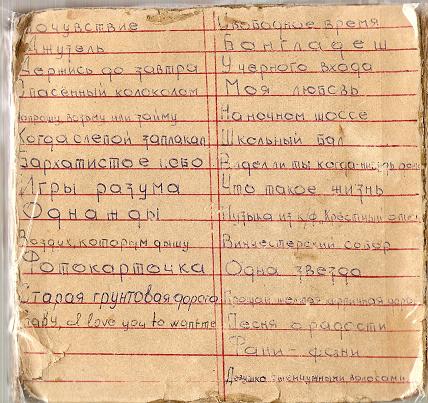 Почувствие
Джутель
Держись до завтра
Спасённый колоколом
попрошу, возьму или займу
Когда слепой заплакал
Бархатистое небо
Игры разума
Однажды
Воздух, которым дышу
Фотокарточка
Старая грунтовая дорога
Baby, I love you to want me
Свободное время
Бангладеш
У черного входа
Моя любовь
На ночном шоссе
Школьный бал
Видел ли ты когда-нибудь
Что такое жизнь
Музыка из к/ф Крёстный отец
Винчестерский собор
Одна звезда
Прощай, желтая кирпичная дорога
Песня о радости
Фани - фани
Девушка с волосами